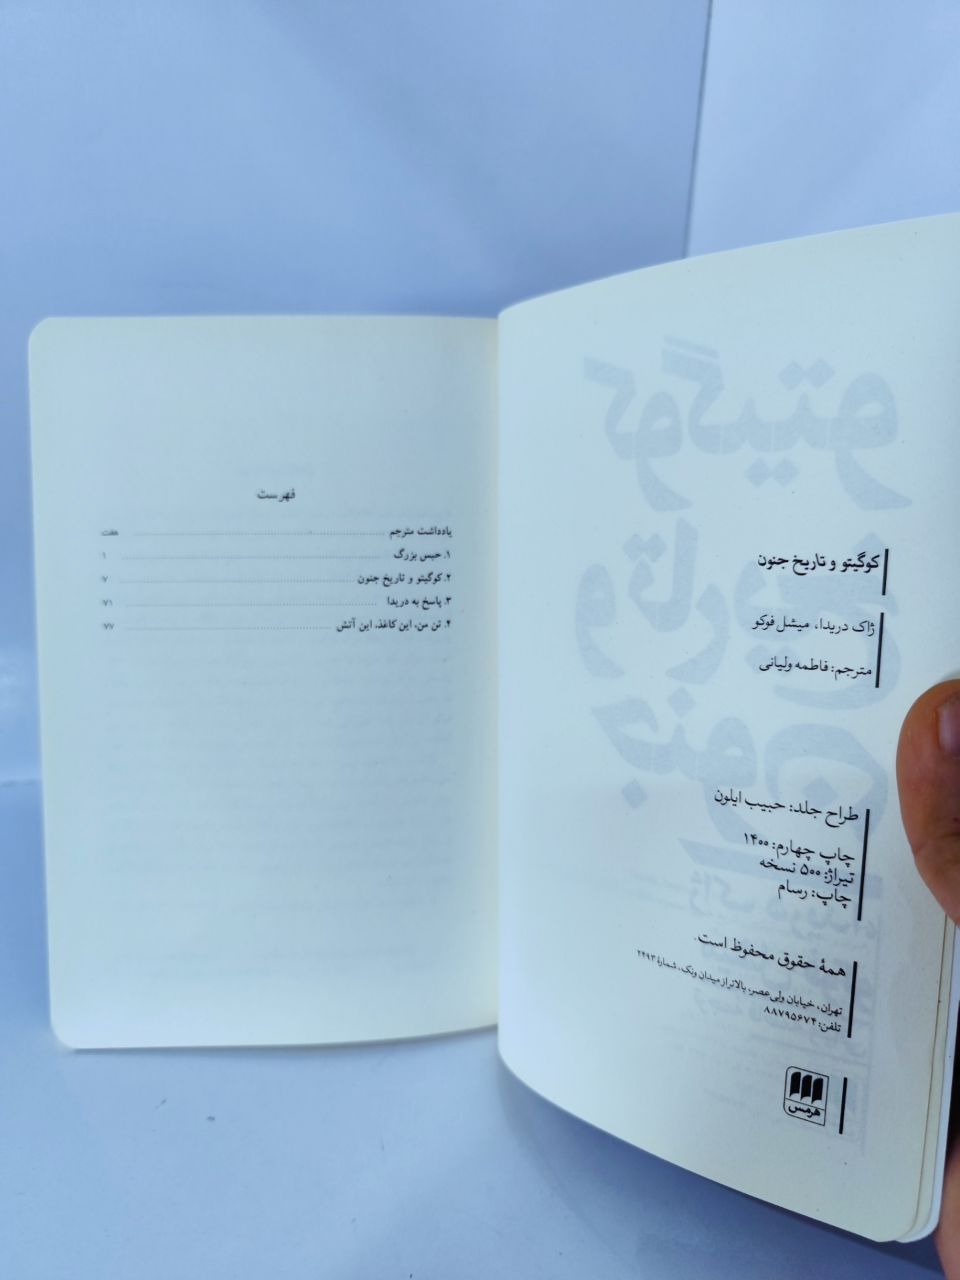 کوگیتو و تاریخ جنون
ژاک دریدا، میشل فوکو
مترجم: فاطمه ولیانی
طراح جلد: حبیب ایلون
چاپ چهارم: ۱۴۰۰
تیراژ: ۵۰۰ نسخه
چاپ: رسام
همهٔ حقوق محفوظ است.
تهران، خیابان ولی‌عصر، بالاتر از میدان ونک، شمارهٔ ۲۴۹۳
تلفن: ۸۸۷۹۵۶۷۴
هرمس
فهرست
یادداشت مترجم ........ هفت
۱. حبس بزرگ ........ ۱
۲. کوگیتو و تاریخ جنون ........ ۷
۳. پاسخ به دریدا ........ ۷۱
۴. تن من، این کاغذ، این آتش ........ ۷۷